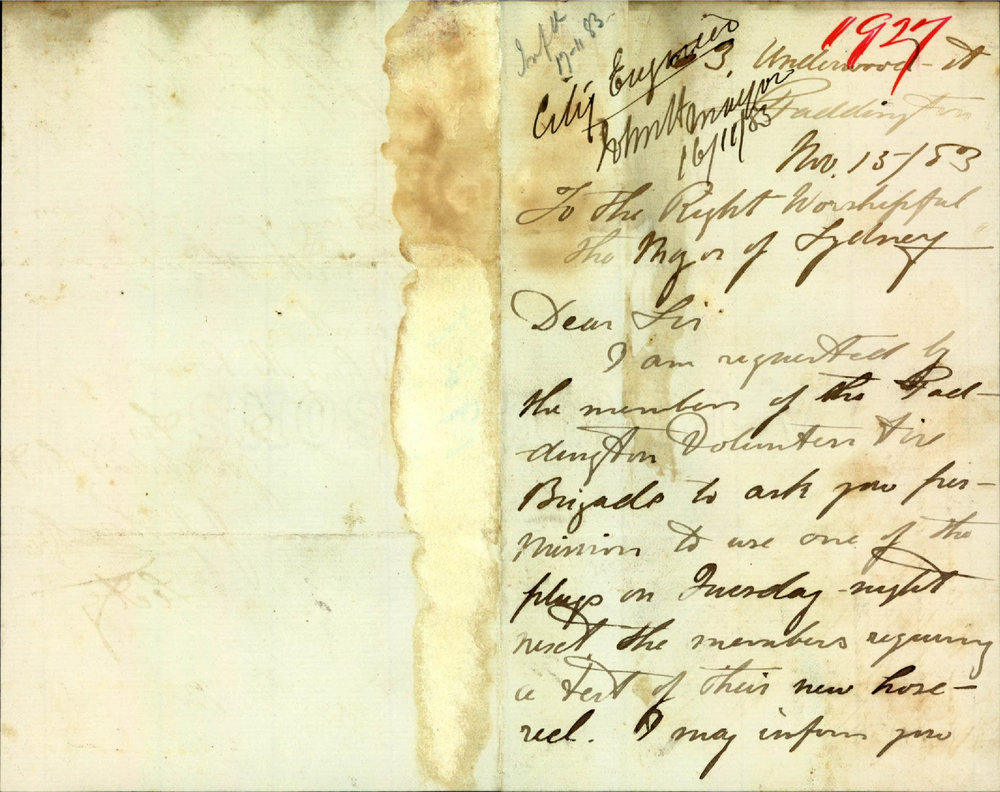 1927
17-11 83
City Engineer
3, Underwood-St
Paddington
John H
mayor
16/11/83
Nov. 15/83
To the Right Worshipful
the Mayor of Sydney
Dear Sir
I am requested by
the members of the Pad-
dington Volunteer Fire
Brigade to ask your per-
mission to use one of the
plugs on Tuesday-night
next, the members requiring
a test of their new hose-
reel. I may inform you